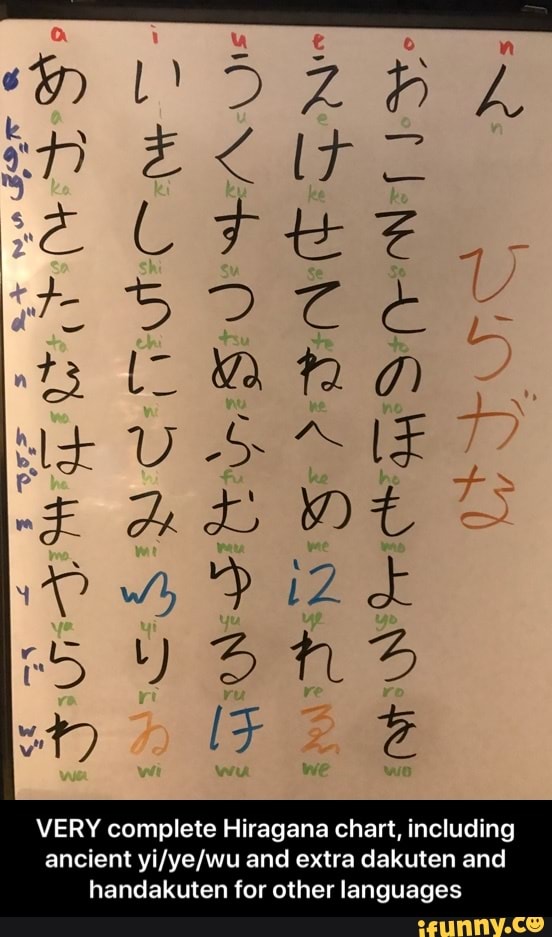 a i u e o n
ø あ い う え お ん
a i u e o n
k g" ng° か き く け こ
ka ki ku ke ko
s z" さ し す せ そ
sa shi su se so
t d" た ち つ て と
ta chi tsu te to
n な に ぬ ね の
na ni nu ne no
h b" p° は ひ ふ へ ほ
ha hi fu he ho
m ま み む め も
ma mi mu me mo
y や ゆ よ
ya yi yu ye yo
r l" ら り る れ ろ
ra ri ru re ro
w v" わ ゐ ゑ を
wa wi wu we wo
ひらがな
VERY complete Hiragana chart, including
ancient yi/ye/wu and extra dakuten and
handakuten for other languages
ifunny.co